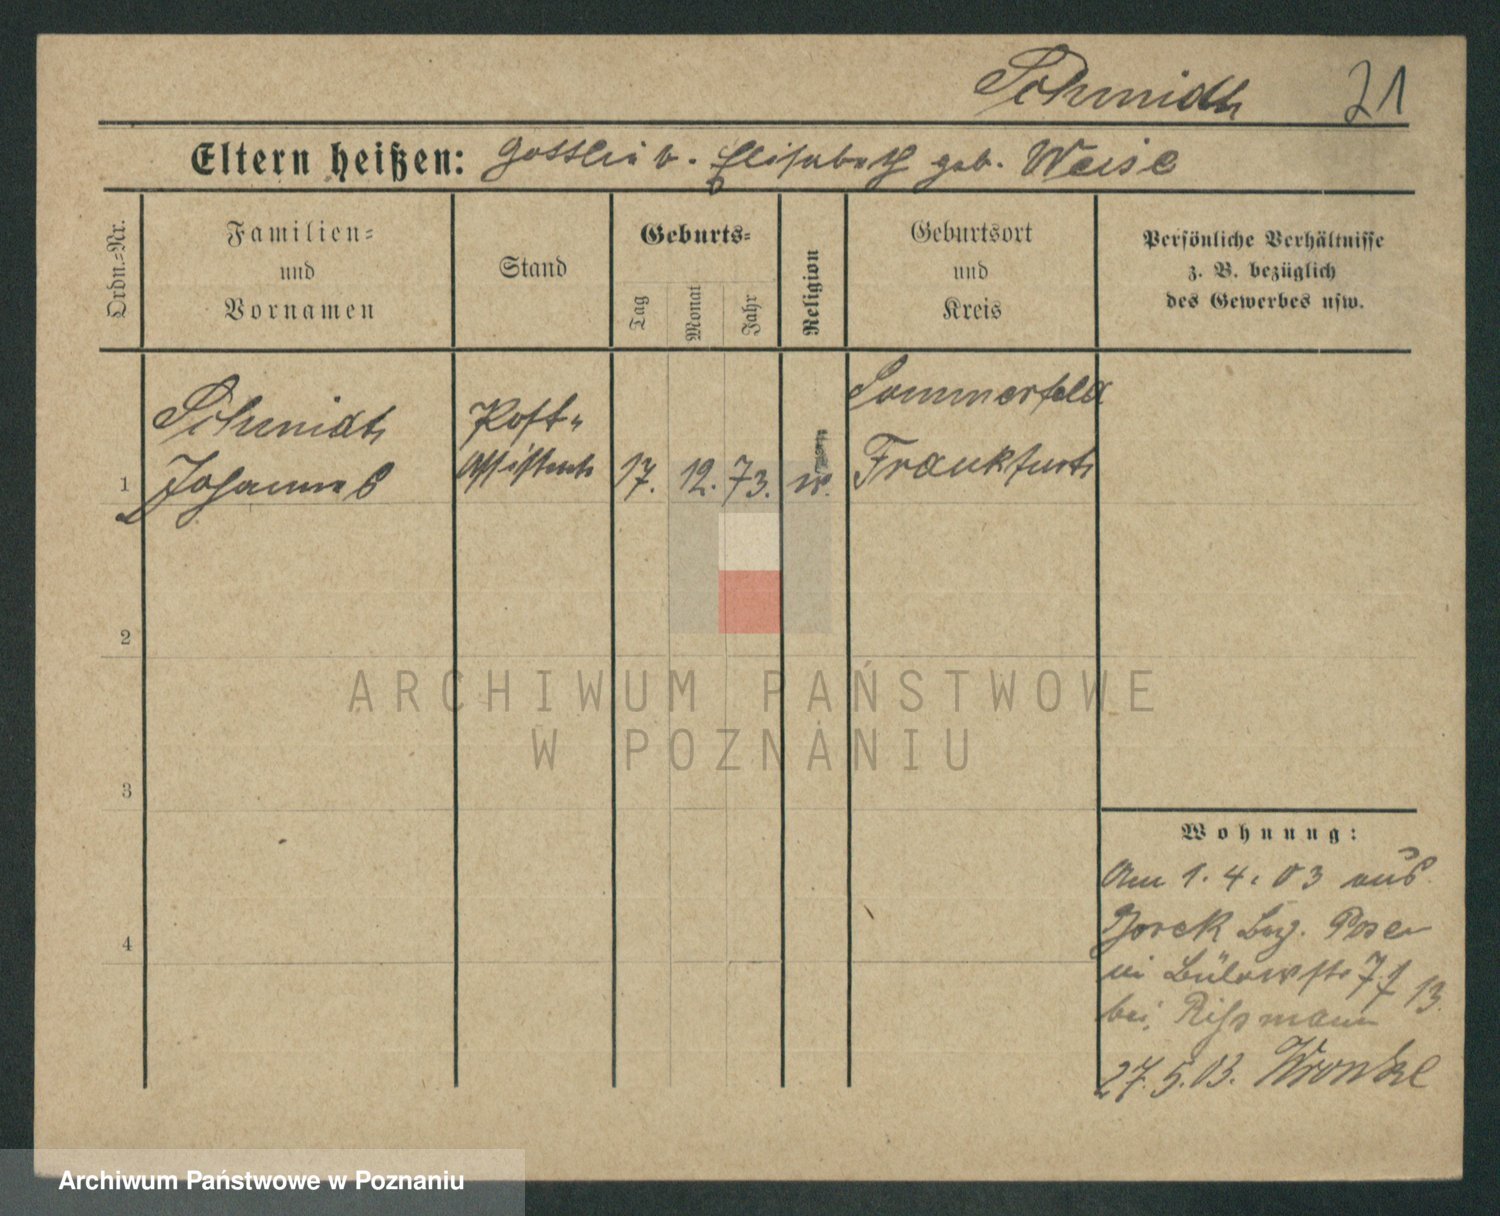 Schmidt 71
Eltern heißen: Gottlieb u. Elisabeth geb. Weise
Ordn.-Nr.
Familien-
und
Vornamen
Stand
Geburts-
Tag
Monat
Jahr
Religion
Geburtsort
und
Kreis
Persönliche Verhältnisse
z. B. bezüglich
des Gewerbes usw.
1
Schmidt
Johannes
Post-
Assistent
17. 12. 73.
Sommerfeld
Frankfurt
2
3
4
ARCHIWUM PAŃSTWOWE
W POZNANIU
Wohnung:
Am 1.4.03 aus
Bez. Posen
Bülowstr 7
bei
27.5.03. Wronke
Archiwum Państwowe w Poznaniu